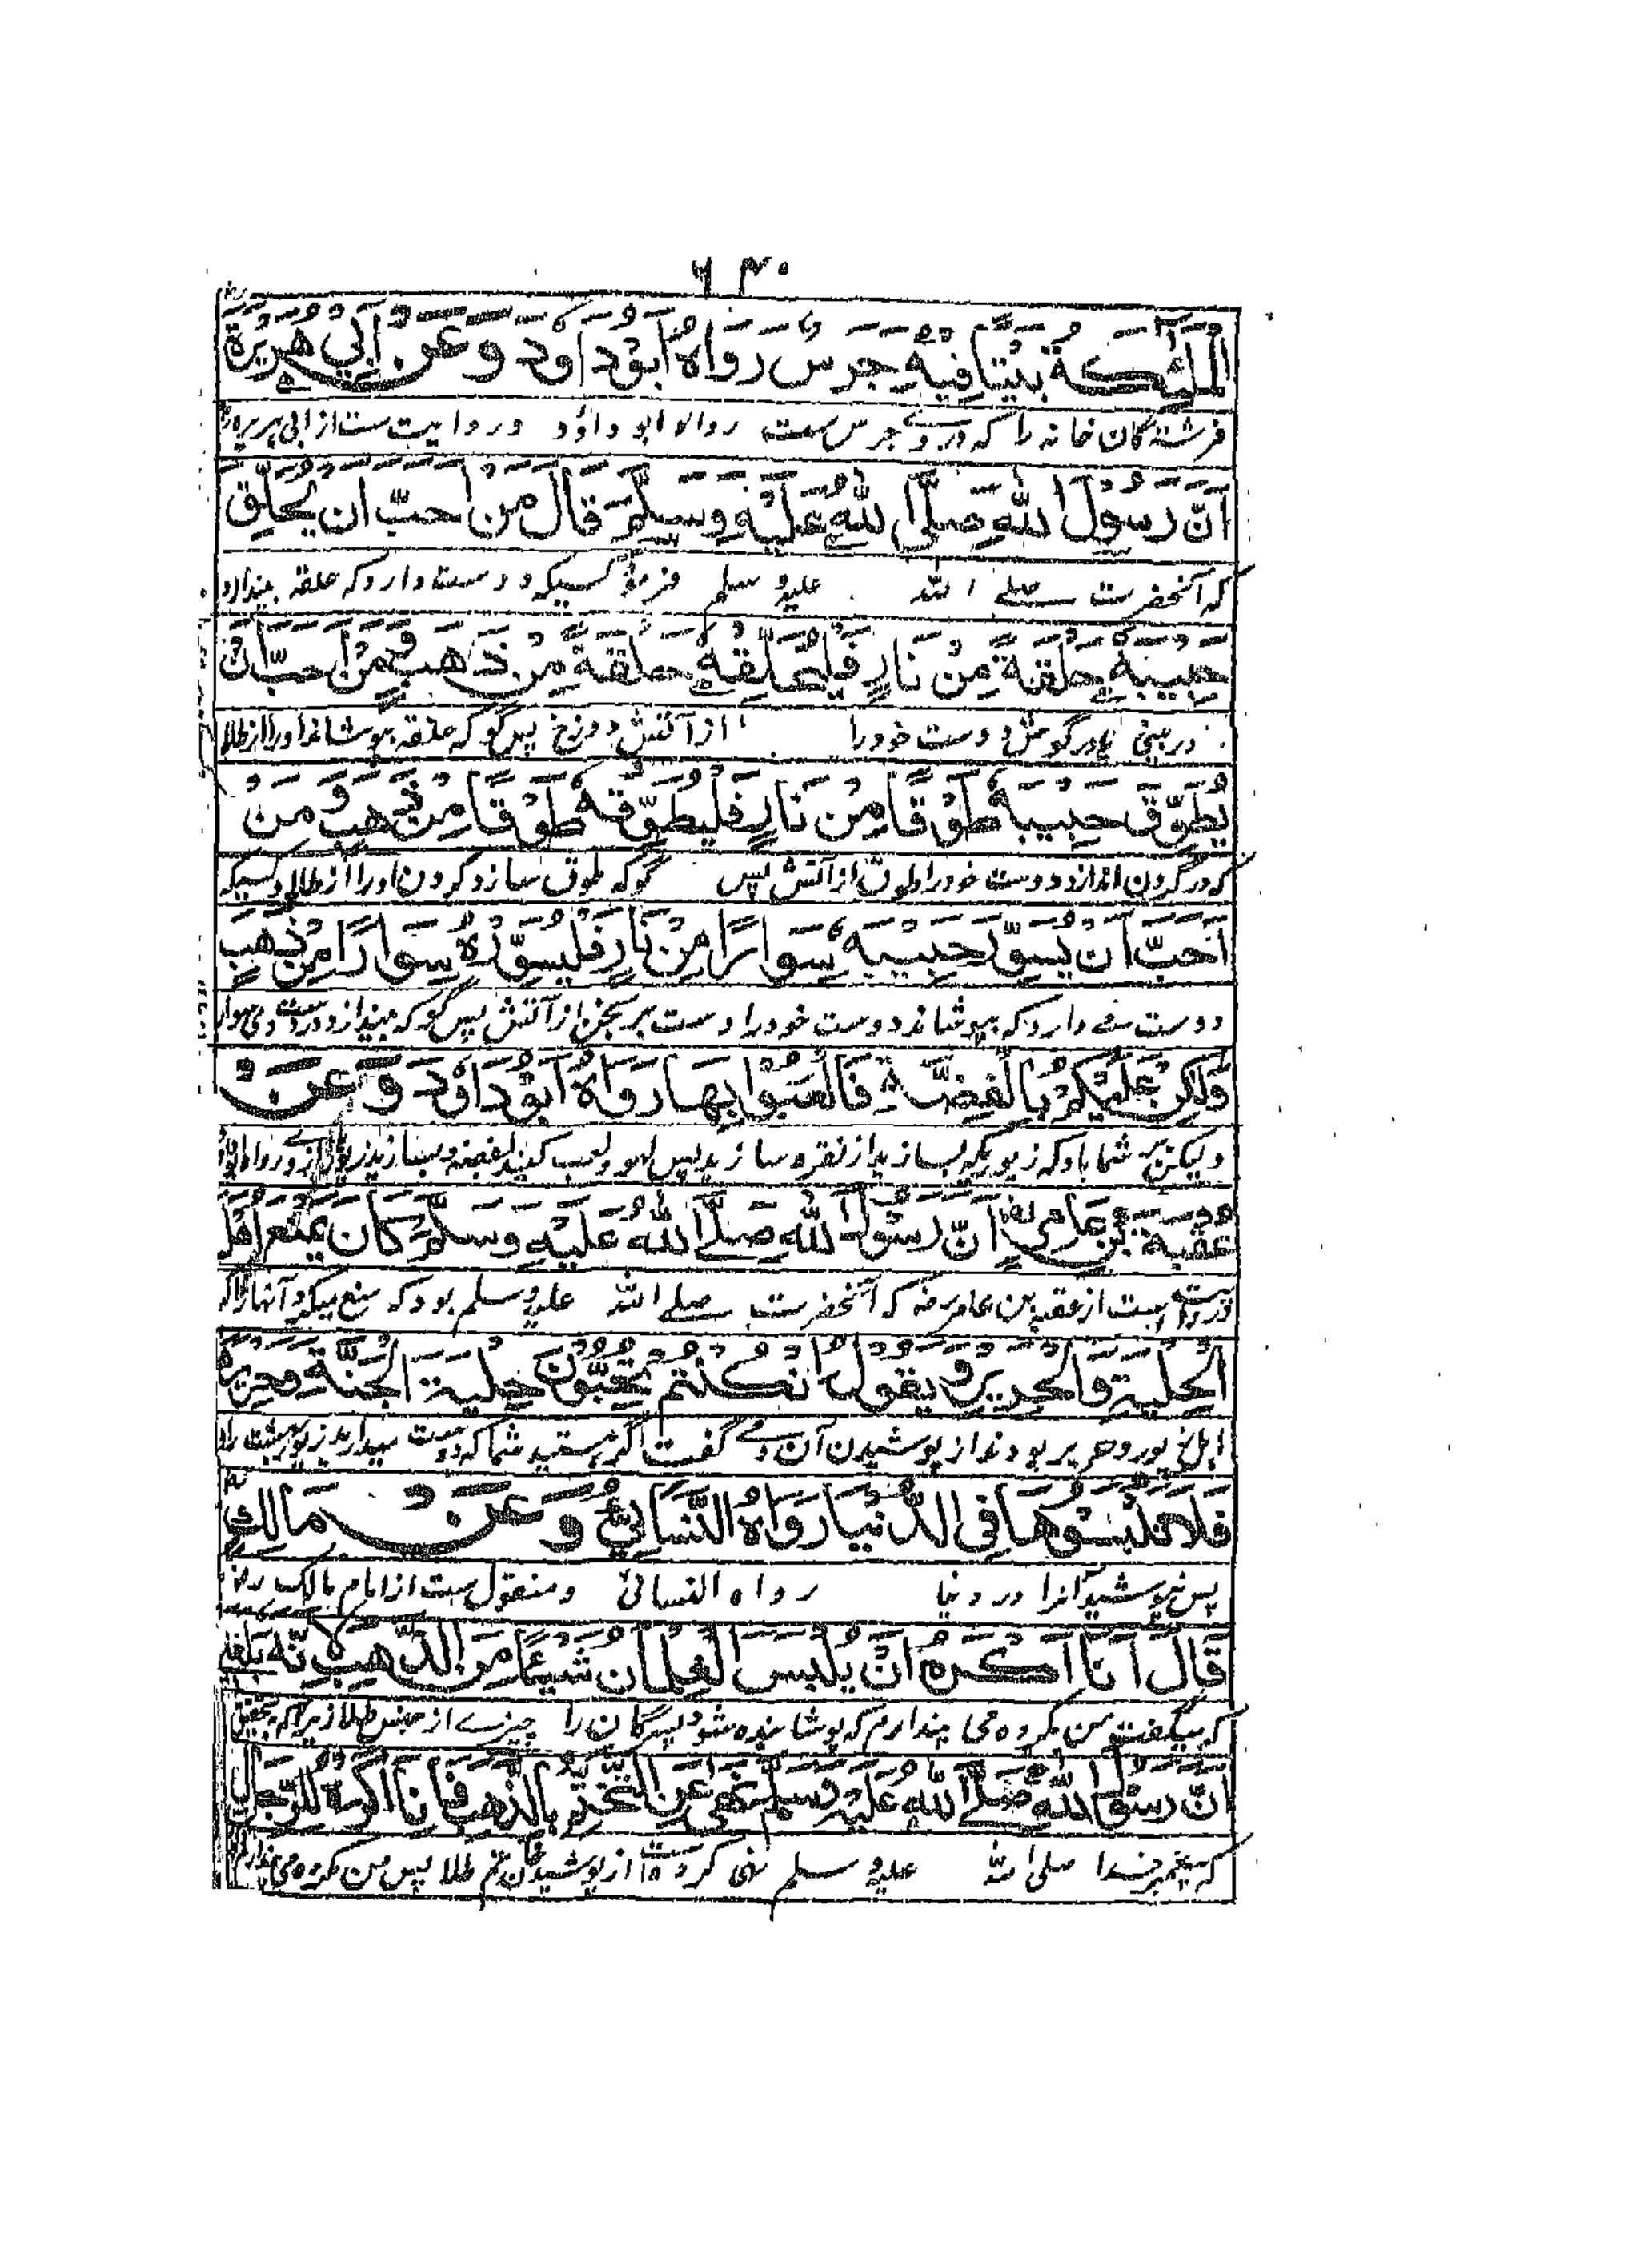 ۶۳۰
الْمَلٰٓئِكَةُ بَيْتًا فِيْهِ جَرَسٌ رَوَاهُ اَبُوْدَاوٗدَ وَعَنْ اَبِيْ هُرَيْرَةَ
فرشتگان خانه را که در وے جرس ست رواه ابو داؤد و روایت ست از ابی هریره
اَنَّ رَسُوْلَ اللّٰهِ صَلَّى اللّٰهُ عَلَيْهِ وَسَلَّمَ قَالَ مَنْ اَحَبَّ اَنْ يُّحَلِّقَ
که آنحضرت صلے الله علیه و سلم فرمود کسیکه دوست دارد که حلقه بیندازد
حَبِيْبَهٗ حَلْقَةً مِّنْ نَّارٍ فَلْيُحَلِّقْهُ حَلْقَةً مِّنْ ذَهَبٍ وَّمَنْ اَحَبَّ اَنْ
در بینی یا در گوش دوست خود را از آتش دوزخ پس گو که حلقه بپوشاند اورا از طلا
يُّطَوِّقَ حَبِيْبَهٗ طَوْقًا مِّنْ نَّارٍ فَلْيُطَوِّقْهُ طَوْقًا مِّنْ ذَهَبٍ وَّمَنْ
که در گردن اندازد دوست خود را طوق از آتش پس گو که طوق سازد گردن اورا از طلا و کسیکه
اَحَبَّ اَنْ يُّسَوِّرَ حَبِيْبَهٗ سِوَارًا مِّنْ نَّارٍ فَلْيُسَوِّرْهُ سِوَارًا مِّنْ ذَهَبٍ
دوست مے دارد که بپوشاند دوست خود را دست برنجن از آتش پس گو که بیندازد در دست وی سوار
وَلٰكِنْ عَلَيْكُمْ بِالْفِضَّةِ فَالْعَبُوْا بِهَا رَوَاهُ اَبُوْدَاوٗدَ وَعَنْ
و لیکن بر شما باد که زیوریکه بسازید از نقره سازید پس لهو و لعب کنید بفضه
عُقْبَةَ بْنِ عَامِرٍ اَنَّ رَسُوْلَ اللّٰهِ صَلَّى اللّٰهُ عَلَيْهِ وَسَلَّمَ كَانَ يَمْنَعُ اَهْلَ
و روایت ست از عقبه بن عامر رضه که آنحضرت صلے الله علیه و سلم بود که منع میکرد آنها را که
الْحِلْيَةِ وَالْحَرِيْرِ وَيَقُوْلُ اِنْ كُنْتُمْ تُحِبُّوْنَ حِلْيَةَ الْجَنَّةِ وَحَرِيْرَهَا
اهل زیور و حریر بودند از پوشیدن آن و مے گفت اگر هستید شما که دوست میدارید زیور بهشت را
فَلَا تَلْبَسُوْهَا فِي الدُّنْيَا رَوَاهُ النَّسَائِيُّ وَعَنْ مَالِكٍ
پس نپوشید آنرا در دنیا رواه النسائی و منقول ست از امام مالک رض
قَالَ اَنَا اَكْرَهُ اَنْ يُّلْبَسَ الْغِلْمَانُ شَيْئًا مِّنَ الذَّهَبِ لِاَنَّهٗ بَلَغَنِيْ
که میگفت من مکروه می پندارم که پوشانیده شود پسرگان را چیزے از جنس طلا زیرا که بتحقیق
اَنَّ رَسُوْلَ اللّٰهِ صَلَّى اللّٰهُ عَلَيْهِ وَسَلَّمَ نَهٰى عَنِ التَّخَتُّمِ بِالذَّهَبِ فَاَنَا اَكْرَهُ لِلرِّجَالِ
که پیغمبر خدا صلی الله علیه و سلم نهی کرده است از پوشیدن خاتم طلا پس من مکروه می پندارم